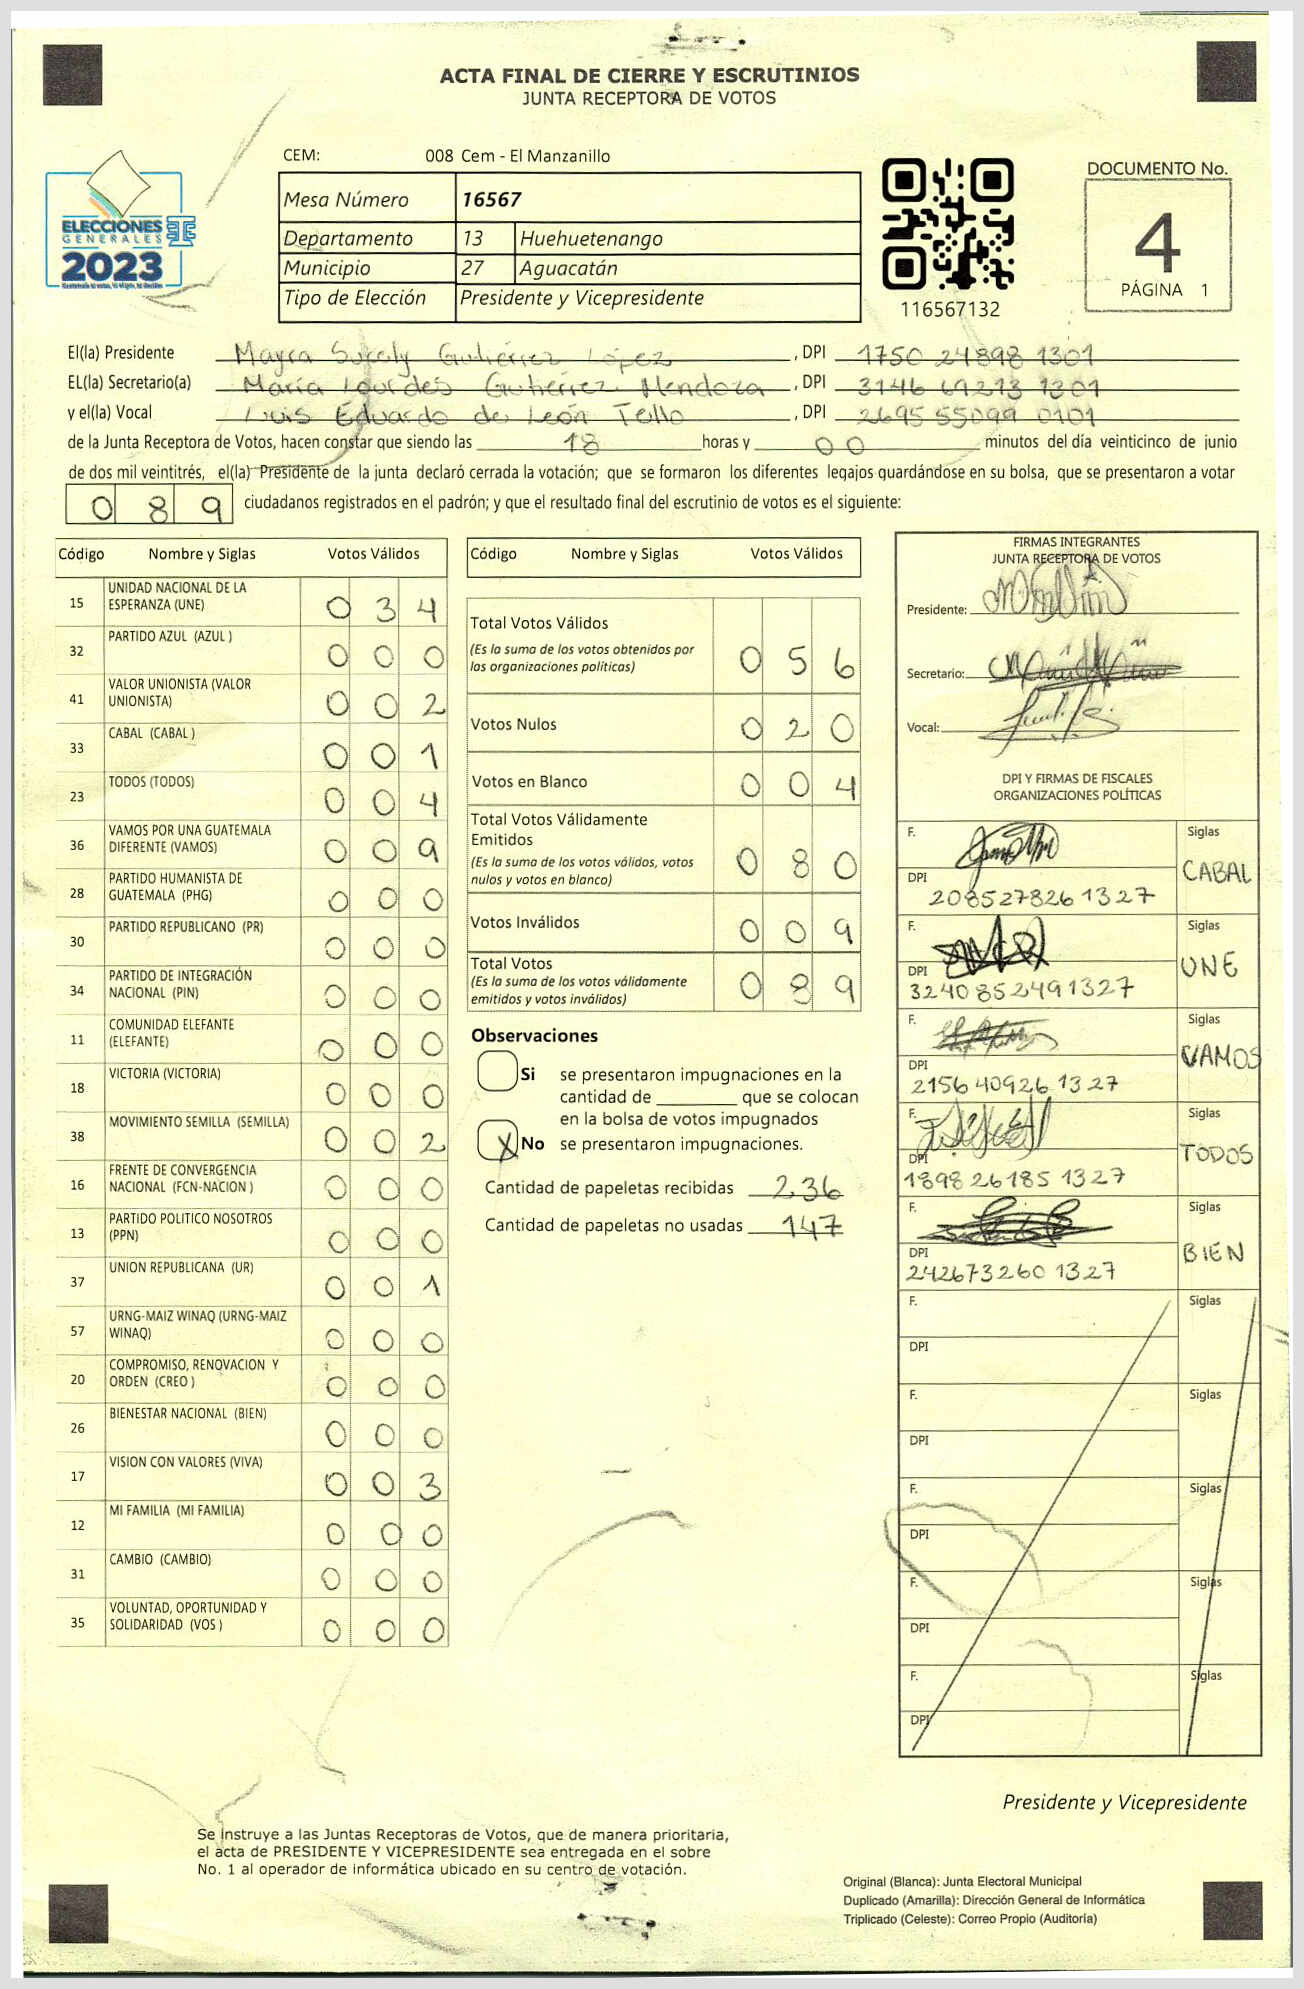 ACTA FINAL DE CIERRE Y ESCRUTINIOS
JUNTA RECEPTORA DE VOTOS
CEM: 008 Cem - El Manzanillo
ELECCIONES
GENERALES
2023
Mesa Número 16567
Departamento 13 Huehuetenango
Municipio 27 Aguacatán
Tipo de Elección Presidente y Vicepresidente
116567132
DOCUMENTO No.
4
PÁGINA 1
El(la) Presidente Mayra Sucely Gutiérrez López, DPI 1750 24898 1301
EL(la) Secretario(a) María Lourdes Gutiérrez Mendoza, DPI 3146 69213 1301
y el(la) Vocal Luis Eduardo de León Tello, DPI 2695 55099 0101
de la Junta Receptora de Votos, hacen constar que siendo las 18 horas y 00 minutos del día veinticinco de junio
de dos mil veintitrés, el(la) Presidente de la junta declaró cerrada la votación; que se formaron los diferentes legajos guardándose en su bolsa, que se presentaron a votar
089 ciudadanos registrados en el padrón; y que el resultado final del escrutinio de votos es el siguiente:
Código Nombre y Siglas Votos Válidos
15 UNIDAD NACIONAL DE LA
ESPERANZA (UNE) 0 3 4
32 PARTIDO AZUL (AZUL ) 0 0 0
41 VALOR UNIONISTA (VALOR
UNIONISTA) 0 0 2
33 CABAL (CABAL ) 0 0 1
23 TODOS (TODOS) 0 0 4
36 VAMOS POR UNA GUATEMALA
DIFERENTE (VAMOS) 0 0 9
28 PARTIDO HUMANISTA DE
GUATEMALA (PHG) 0 0 0
30 PARTIDO REPUBLICANO (PR) 0 0 0
34 PARTIDO DE INTEGRACIÓN
NACIONAL (PIN) 0 0 0
11 COMUNIDAD ELEFANTE
(ELEFANTE) 0 0 0
18 VICTORIA (VICTORIA) 0 0 0
38 MOVIMIENTO SEMILLA (SEMILLA) 0 0 2
16 FRENTE DE CONVERGENCIA
NACIONAL (FCN-NACION ) 0 0 0
13 PARTIDO POLITICO NOSOTROS
(PPN) 0 0 0
37 UNION REPUBLICANA (UR) 0 0 1
57 URNG-MAIZ WINAQ (URNG-MAIZ
WINAQ) 0 0 0
20 COMPROMISO, RENOVACION Y
ORDEN (CREO ) 0 0 0
26 BIENESTAR NACIONAL (BIEN) 0 0 0
17 VISION CON VALORES (VIVA) 0 0 3
12 MI FAMILIA (MI FAMILIA) 0 0 0
31 CAMBIO (CAMBIO) 0 0 0
35 VOLUNTAD, OPORTUNIDAD Y
SOLIDARIDAD (VOS ) 0 0 0
Código Nombre y Siglas Votos Válidos
Total Votos Válidos
(Es la suma de los votos obtenidos por
las organizaciones políticas) 0 5 6
Votos Nulos 0 2 0
Votos en Blanco 0 0 4
Total Votos Válidamente
Emitidos
(Es la suma de los votos válidos, votos
nulos y votos en blanco) 0 8 0
Votos Inválidos 0 0 9
Total Votos
(Es la suma de los votos válidamente
emitidos y votos inválidos) 0 8 9
Observaciones
Si se presentaron impugnaciones en la
cantidad de ________ que se colocan
en la bolsa de votos impugnados
X No se presentaron impugnaciones.
Cantidad de papeletas recibidas 236
Cantidad de papeletas no usadas 147
FIRMAS INTEGRANTES
JUNTA RECEPTORA DE VOTOS
Presidente:
Secretario:
Vocal:
DPI Y FIRMAS DE FISCALES
ORGANIZACIONES POLÍTICAS
F. Siglas
CABAL
DPI
208527826 1327
F. Siglas
UNE
DPI
3240852491327
F. Siglas
VAMOS
DPI
2156 40926 1327
F. Siglas
TODOS
DPI
1898 26185 1327
F. Siglas
BIEN
DPI
242673260 1327
F. Siglas
DPI
F. Siglas
DPI
F. Siglas
DPI
F. Siglas
DPI
F. Siglas
DPI
Presidente y Vicepresidente
Se instruye a las Juntas Receptoras de Votos, que de manera prioritaria,
el acta de PRESIDENTE Y VICEPRESIDENTE sea entregada en el sobre
No. 1 al operador de informática ubicado en su centro de votación.
Original (Blanca): Junta Electoral Municipal
Duplicado (Amarilla): Dirección General de Informática
Triplicado (Celeste): Correo Propio (Auditoría)